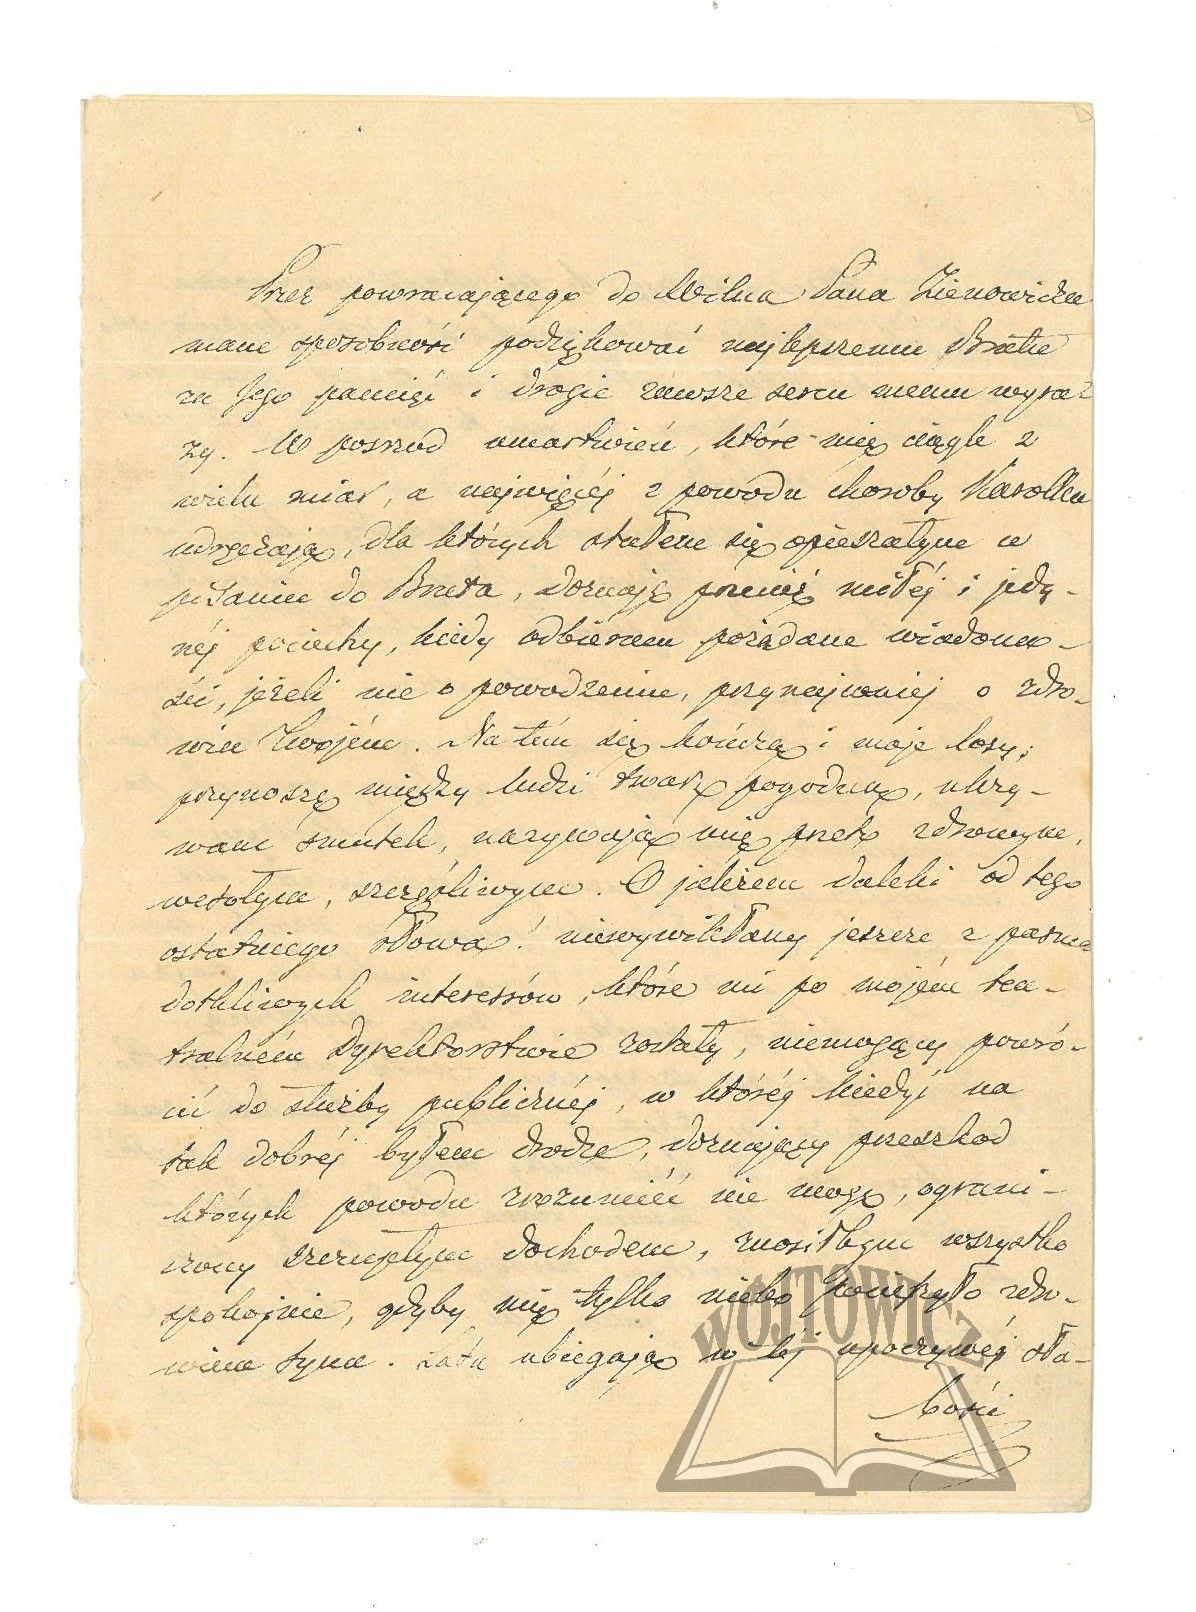 Przez powracającego do Wilna Pana Zienowicza
mam sposobność podziękować najlepszemu Bratu
za Jego pamięć i drogie zawsze sercu memu wyra-
zy. W pośrzód umartwień, które mię ciągle z
wielu miar, a najwięcéj z powodu choroby Karolka
udręczają, dla których stałem się opieszałym w
pisaniu do Brata, doznaję miłéj i jedy-
néj pociechy, kiedy odbieram pożądane wiadomo-
ści, jeżeli nie o powodzeniu, przynajmniej o zdro-
wiu Twojém. Na tém się kończą i moje losy;
przynoszę między ludzi twarz pogodną, ukry-
wam smutek, nazywają mię przeto zdrowym,
wesołym, szczęśliwym. O jakżem daleki od tego
ostatniego słowa! niewywikłany jeszcze z pasma
dotkliwych interessów, które mi po mojém tea-
tralném Dyrektorstwie zostały, niemogący powró-
cić do służby publicznéj, w któréj kiedyś na
tak dobréj byłem drodze, doznający przeszkod
których powodu zrozumiéć nie mogę, ograni-
czony szczupłym dochodem, znosiłbym wszystko
spokojnie, gdyby mię tylko niebo pocieszyło zdro-
wiem syna. Lata ubiegają w téj uporczywéj sła-
bości
WÓJTOWICZ